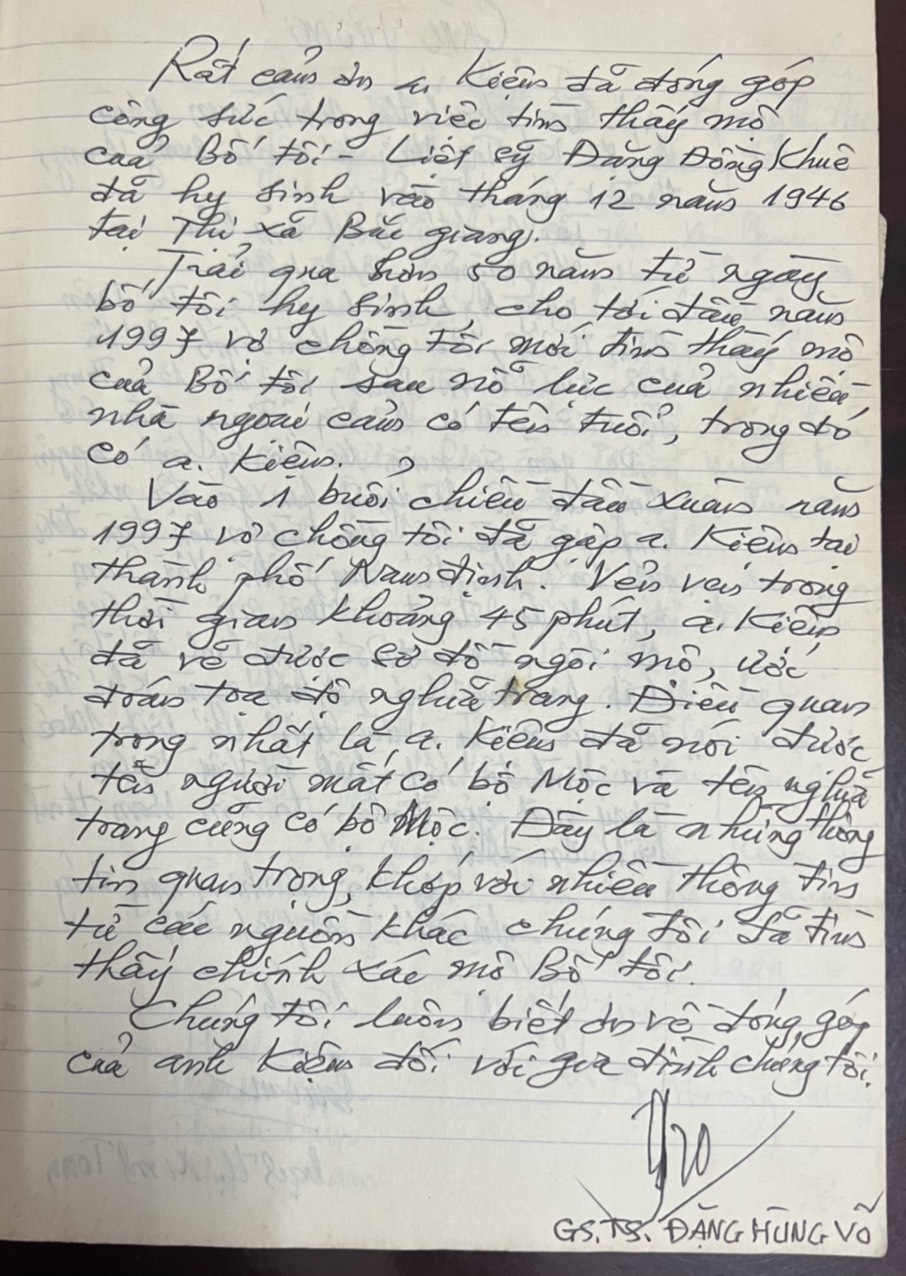 Rất cảm ơn a. Kiệm đã đóng góp
công sức trong việc tìm thấy mộ
của Bố tôi - Liệt sỹ Đặng Đồng Khuê
đã hy sinh vào tháng 12 năm 1946
tại Thị xã Bắc giang.
Trải qua hơn 50 năm từ ngày
bố tôi hy sinh, cho tới đầu năm
1997 vợ chồng tôi mới tìm thấy mộ
của Bố tôi sau nỗ lực của nhiều
nhà ngoại cảm có tên tuổi, trong đó
có a. Kiệm.
Vào 1 buổi chiều đầu xuân năm
1997 vợ chồng tôi đã gặp a. Kiệm tại
thành phố Nam định. Vẻn vẹn trong
thời gian khoảng 45 phút, a. Kiệm
đã vẽ được sơ đồ ngôi mộ, ước
đoán tọa độ nghĩa trang. Điều quan
trọng nhất là a. Kiệm đã nói được
tên người mất có bộ Mộc và tên nghĩa
trang cũng có bộ Mộc. Đây là những thông
tin quan trọng, khớp với nhiều thông tin
từ các nguồn khác chúng tôi đã tìm
thấy chính xác mộ Bố tôi.
Chúng tôi luôn biết ơn về đóng góp
của anh Kiệm đối với gia đình chúng tôi.
GS.TS. ĐẶNG HÙNG VÕ